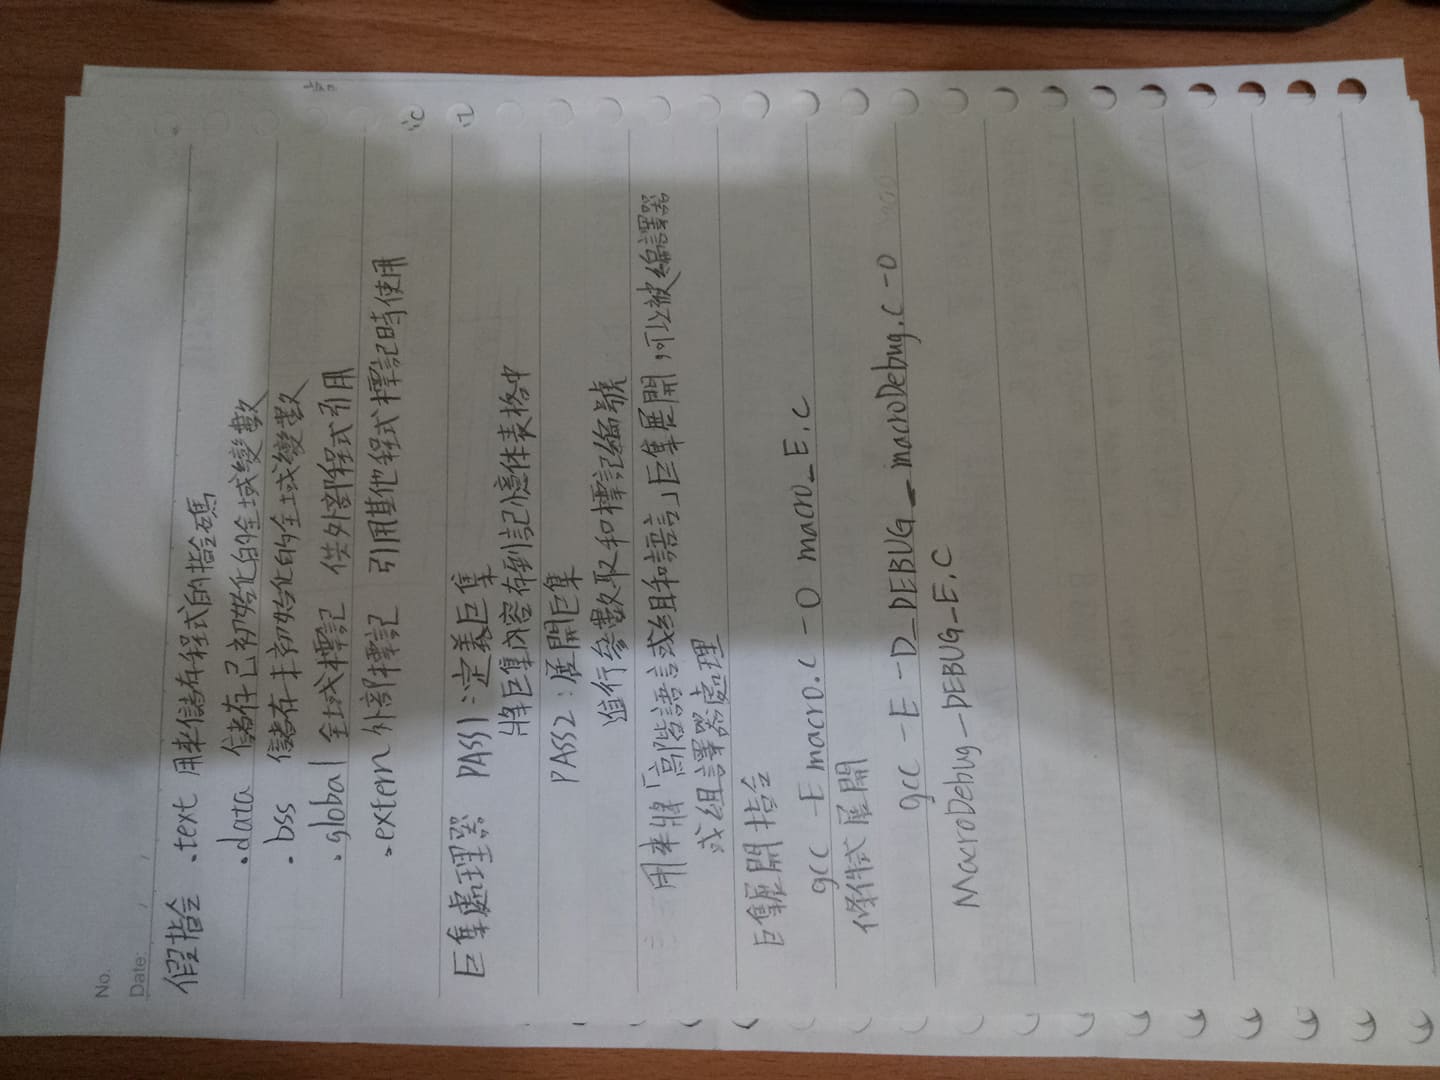 No.
Date: / /
假指令 .text 用來儲存程式的指令碼
.data 儲存已初始化的全域變數
.bss 儲存未初始化的全域變數
.global 全域標記 供外部程式引用
.extern 外部標記 引用其他程式標記時使用
巨集處理器 PASS1:定義巨集
將巨集內容存到記憶体表格中
PASS2:展開巨集
進行參數取和標記編號
用來將「高階語言或組和語言」巨集展開,可以被編譯器
或組譯器處理
巨集展開指令
gcc -E macro.c -O macro_E.c
條件式展開
gcc -E -D_DEBUG_ macroDebug.c -O
MacroDebug_DEBUG_E.C